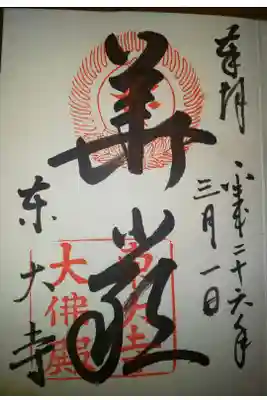 奉拝
平成二十六年
三月一日
華厳
東大寺
東大寺
大佛殿